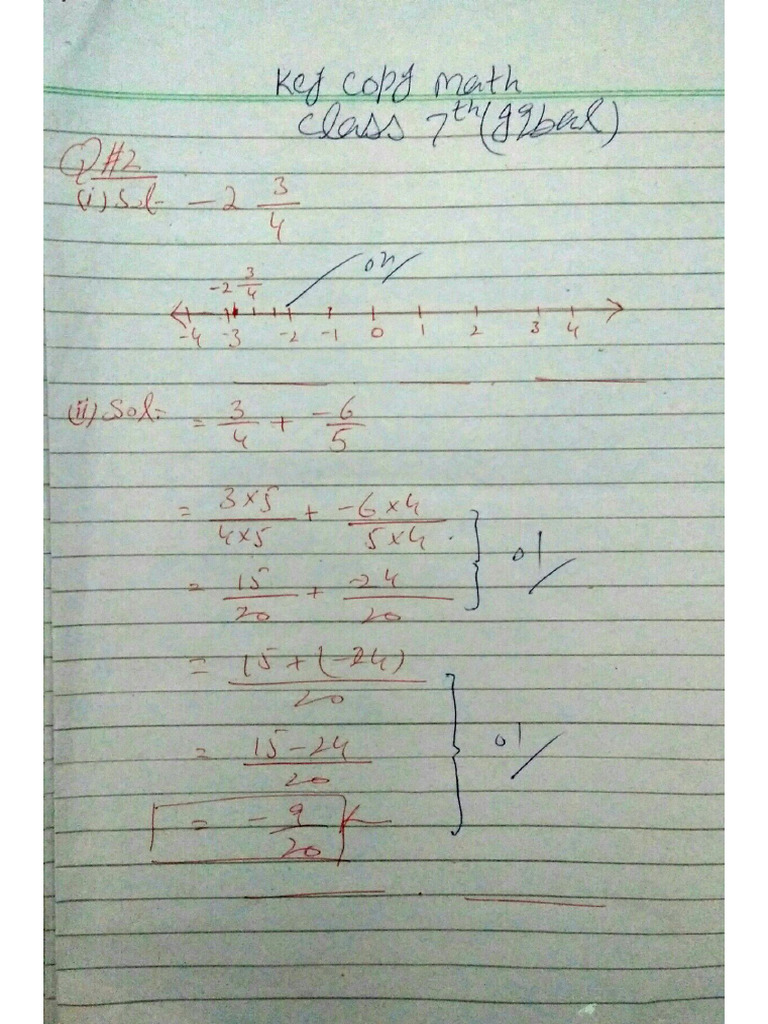 Key copy math
class 7th (
Q#2
(i) Sol- -2 3/4
-2 3/4
-4 -3 -2 -1 0 1 2 3 4
(ii) Sol- = 3/4 + -6/5
= 3×5/4×5 + -6×4/5×4
01
= 15/20 + -24/20
= 15+(-24)/20
01
= 15-24/20
= -9/20